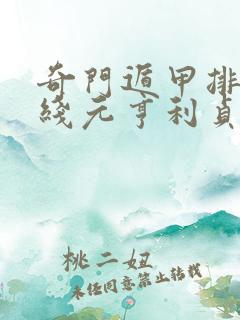 奇門遁甲排
綫元亨利貞
桃二妞
未经同意禁止转载